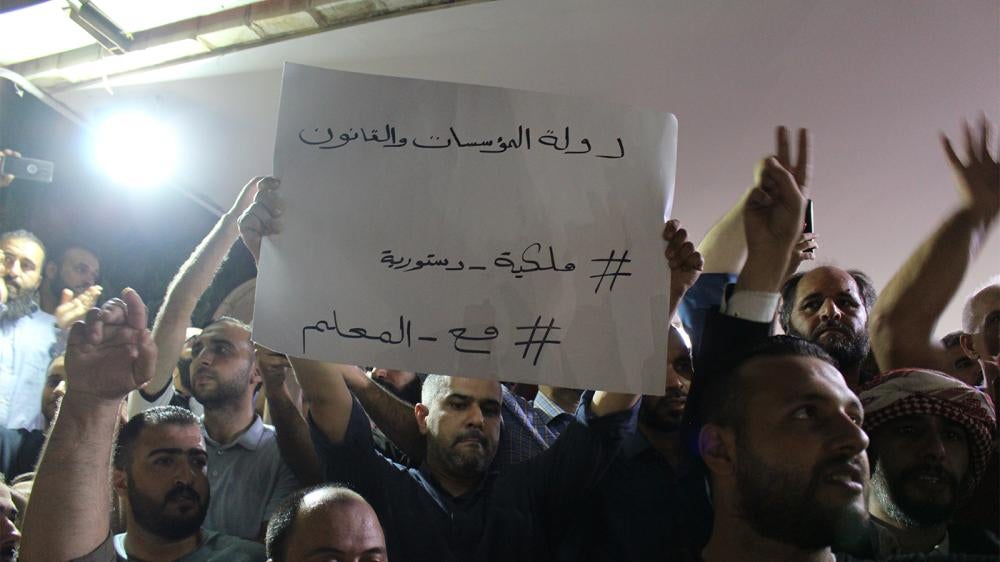 دولة المؤسسات والقانون
# ملكية - دستورية
# مع - المعلم